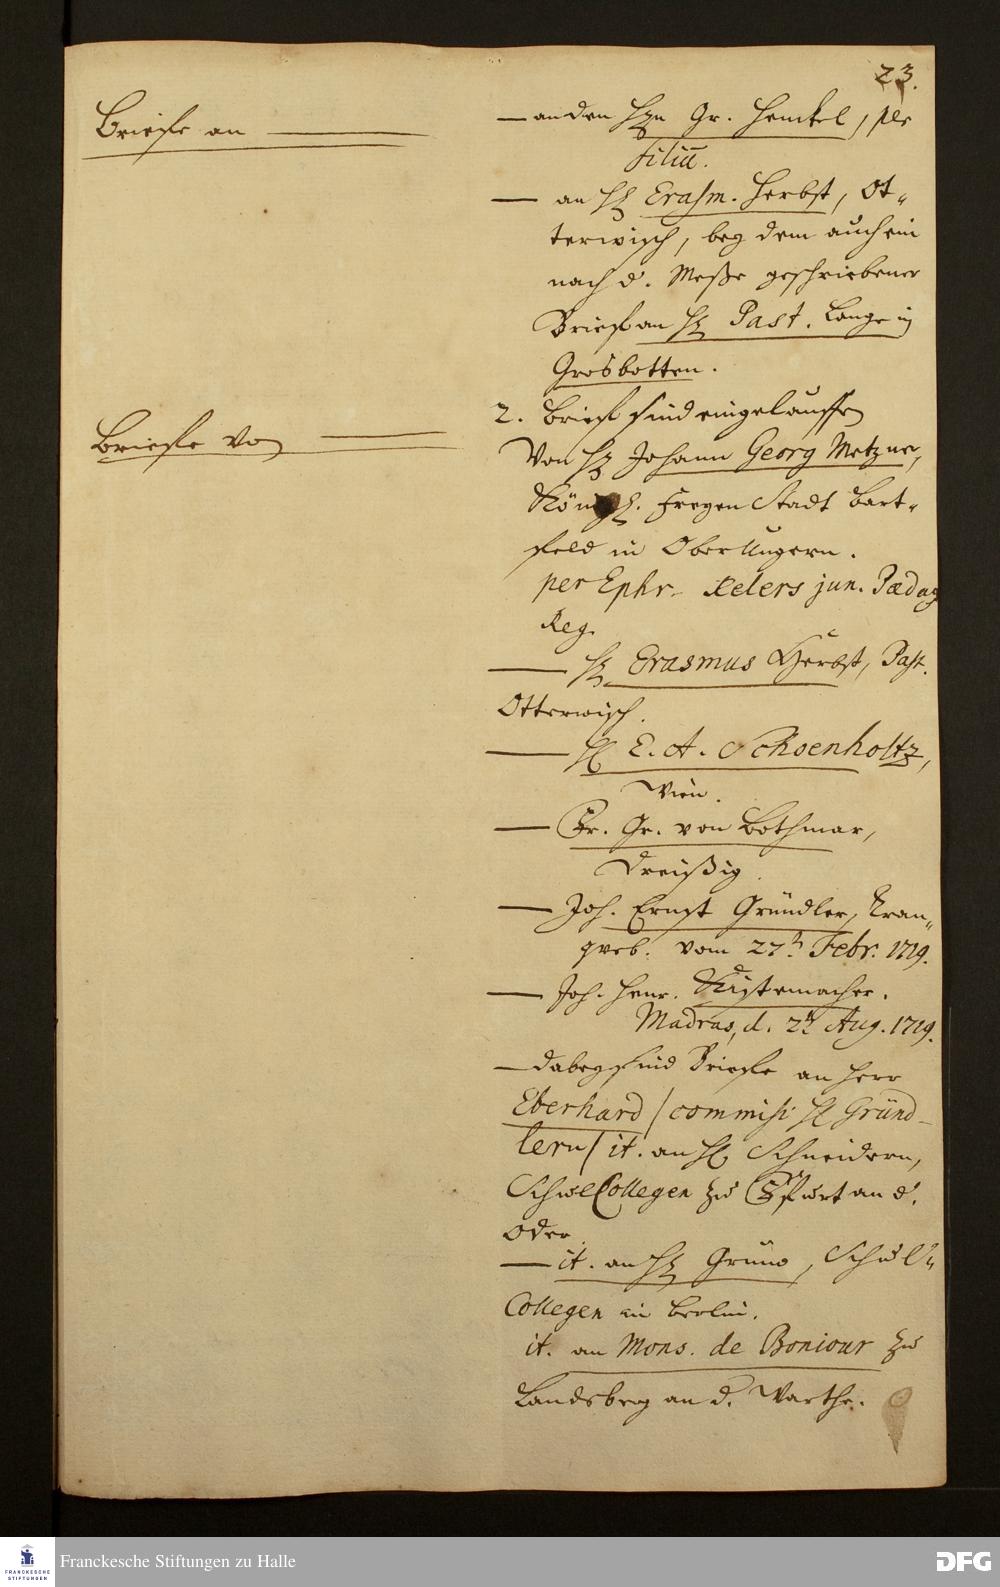 23.
Briefe an
— an den Hrn Gr. Henckel, per
filiū.
— an H. Erasm. Herbst, Ot-
terwisch, bey dem auch ein
nach d. Messe geschriebener
Brief an H. Past. Lange in
Grosbotten.
Briefe von
2. Briefe sind eingelauffen
Von H. Johann Georg Metzner,
Königl. Freyen Stadt Bart-
feld in Ober Ungern.
per Ephr. jun. Pædag
Reg.
— H. Erasmus Herbst, Past.
Otterwisch.
— H. E. A. Schoenholtz,
Wien.
— Fr. Gr. von Bothmar,
Dreißig.
— Joh. Ernst Gründler, Tran-
qveb. vom 27t Febr. 1719.
— Joh. Henr. Kistemacher.
Madras, d. Aug. 1719.
— dabey sind Briefe an Herr
Eberhard / commiss H. Gründ-
lern / it. an H. Schneidern,
Schul Collegen zu Fr.furt an d.
Oder
— it. an H. Gruno, Schul-
Collegen in Berlin.
it. an Mons. de Boniour zu
Landsberg an d. Warthe.
FRANCKESCHE
STIFTUNGEN
Franckesche Stiftungen zu Halle
DFG